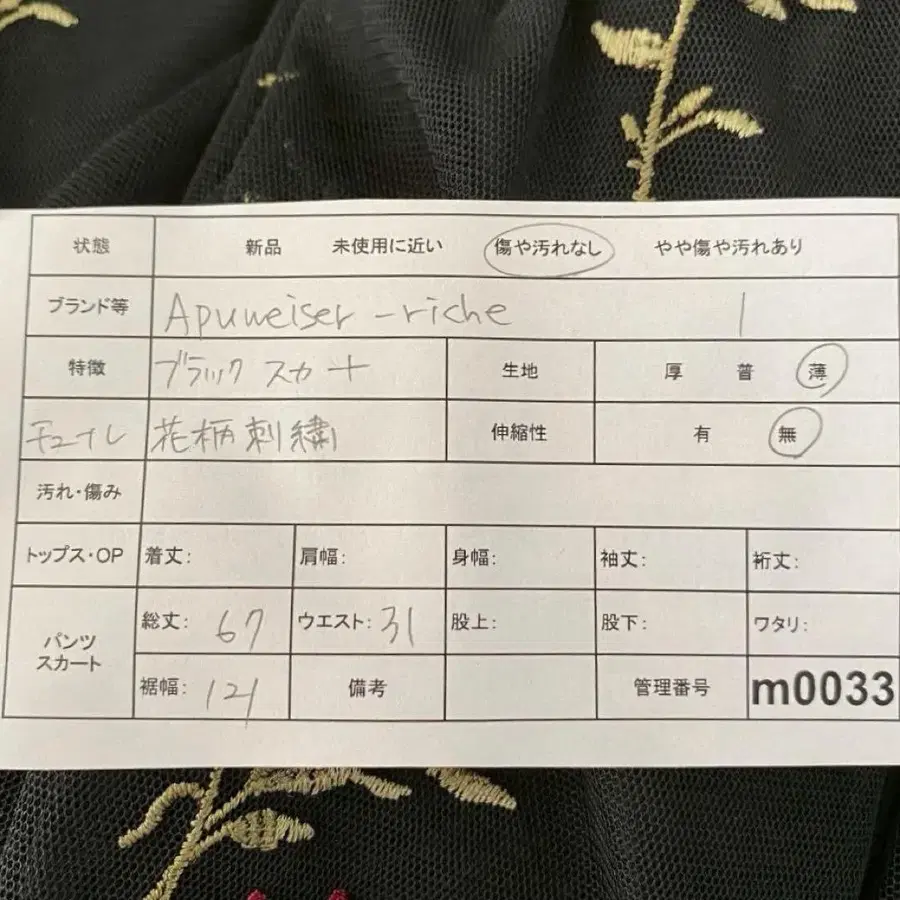 状態 新品 未使用に近い 傷や汚れなし やや傷や汚れあり
ブランド等 Apuweiser-riche 1
特徴 ブラック スカート 生地 厚 普 薄
チュール 花柄刺繍 伸縮性 有 無
汚れ・傷み
トップス・OP 着丈: 肩幅: 身幅: 袖丈: 裄丈:
パンツ スカート 総丈: 67 ウエスト: 31 股上: 股下: ワタリ:
裾幅: 121 備考 管理番号 m0033